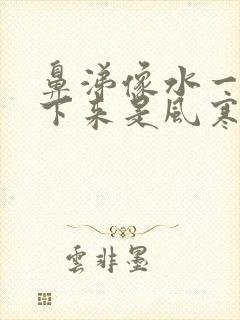 鼻涕像水一
下来是風寒
雲非墨